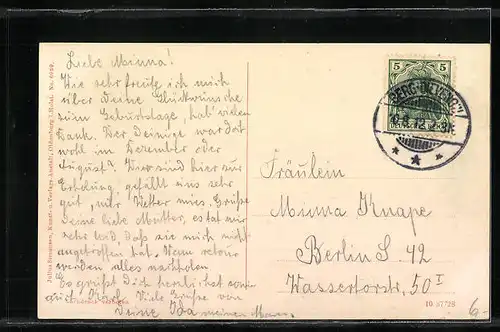 Liebe Minna!
Wie sehr freute ich mich
über Deine Glückwünsche
zum Geburtstage, hab' vielen
Dank. Der Deinige war dort
wohl im Dezember oder
August? Wir sind hier zur
Erholung, gefällt uns sehr
gut, nur Wetter mies. Grüße
Deine liebe Mutter, es tat mir
sehr leid, daß sie mich nicht
angetroffen hat. Wenn retour
werden alles nachholen
Es grüßt Dich herzlichst
auch Viele Grüße von
Deine Ida meinem Mann
Fräulein
Minna Knape
Berlin S. 42
Wassertorstr. 50 I
5 5
10 57729
6.-